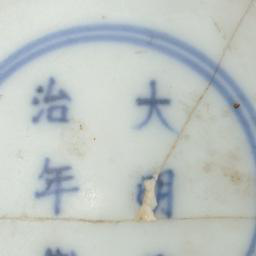 大明
治年